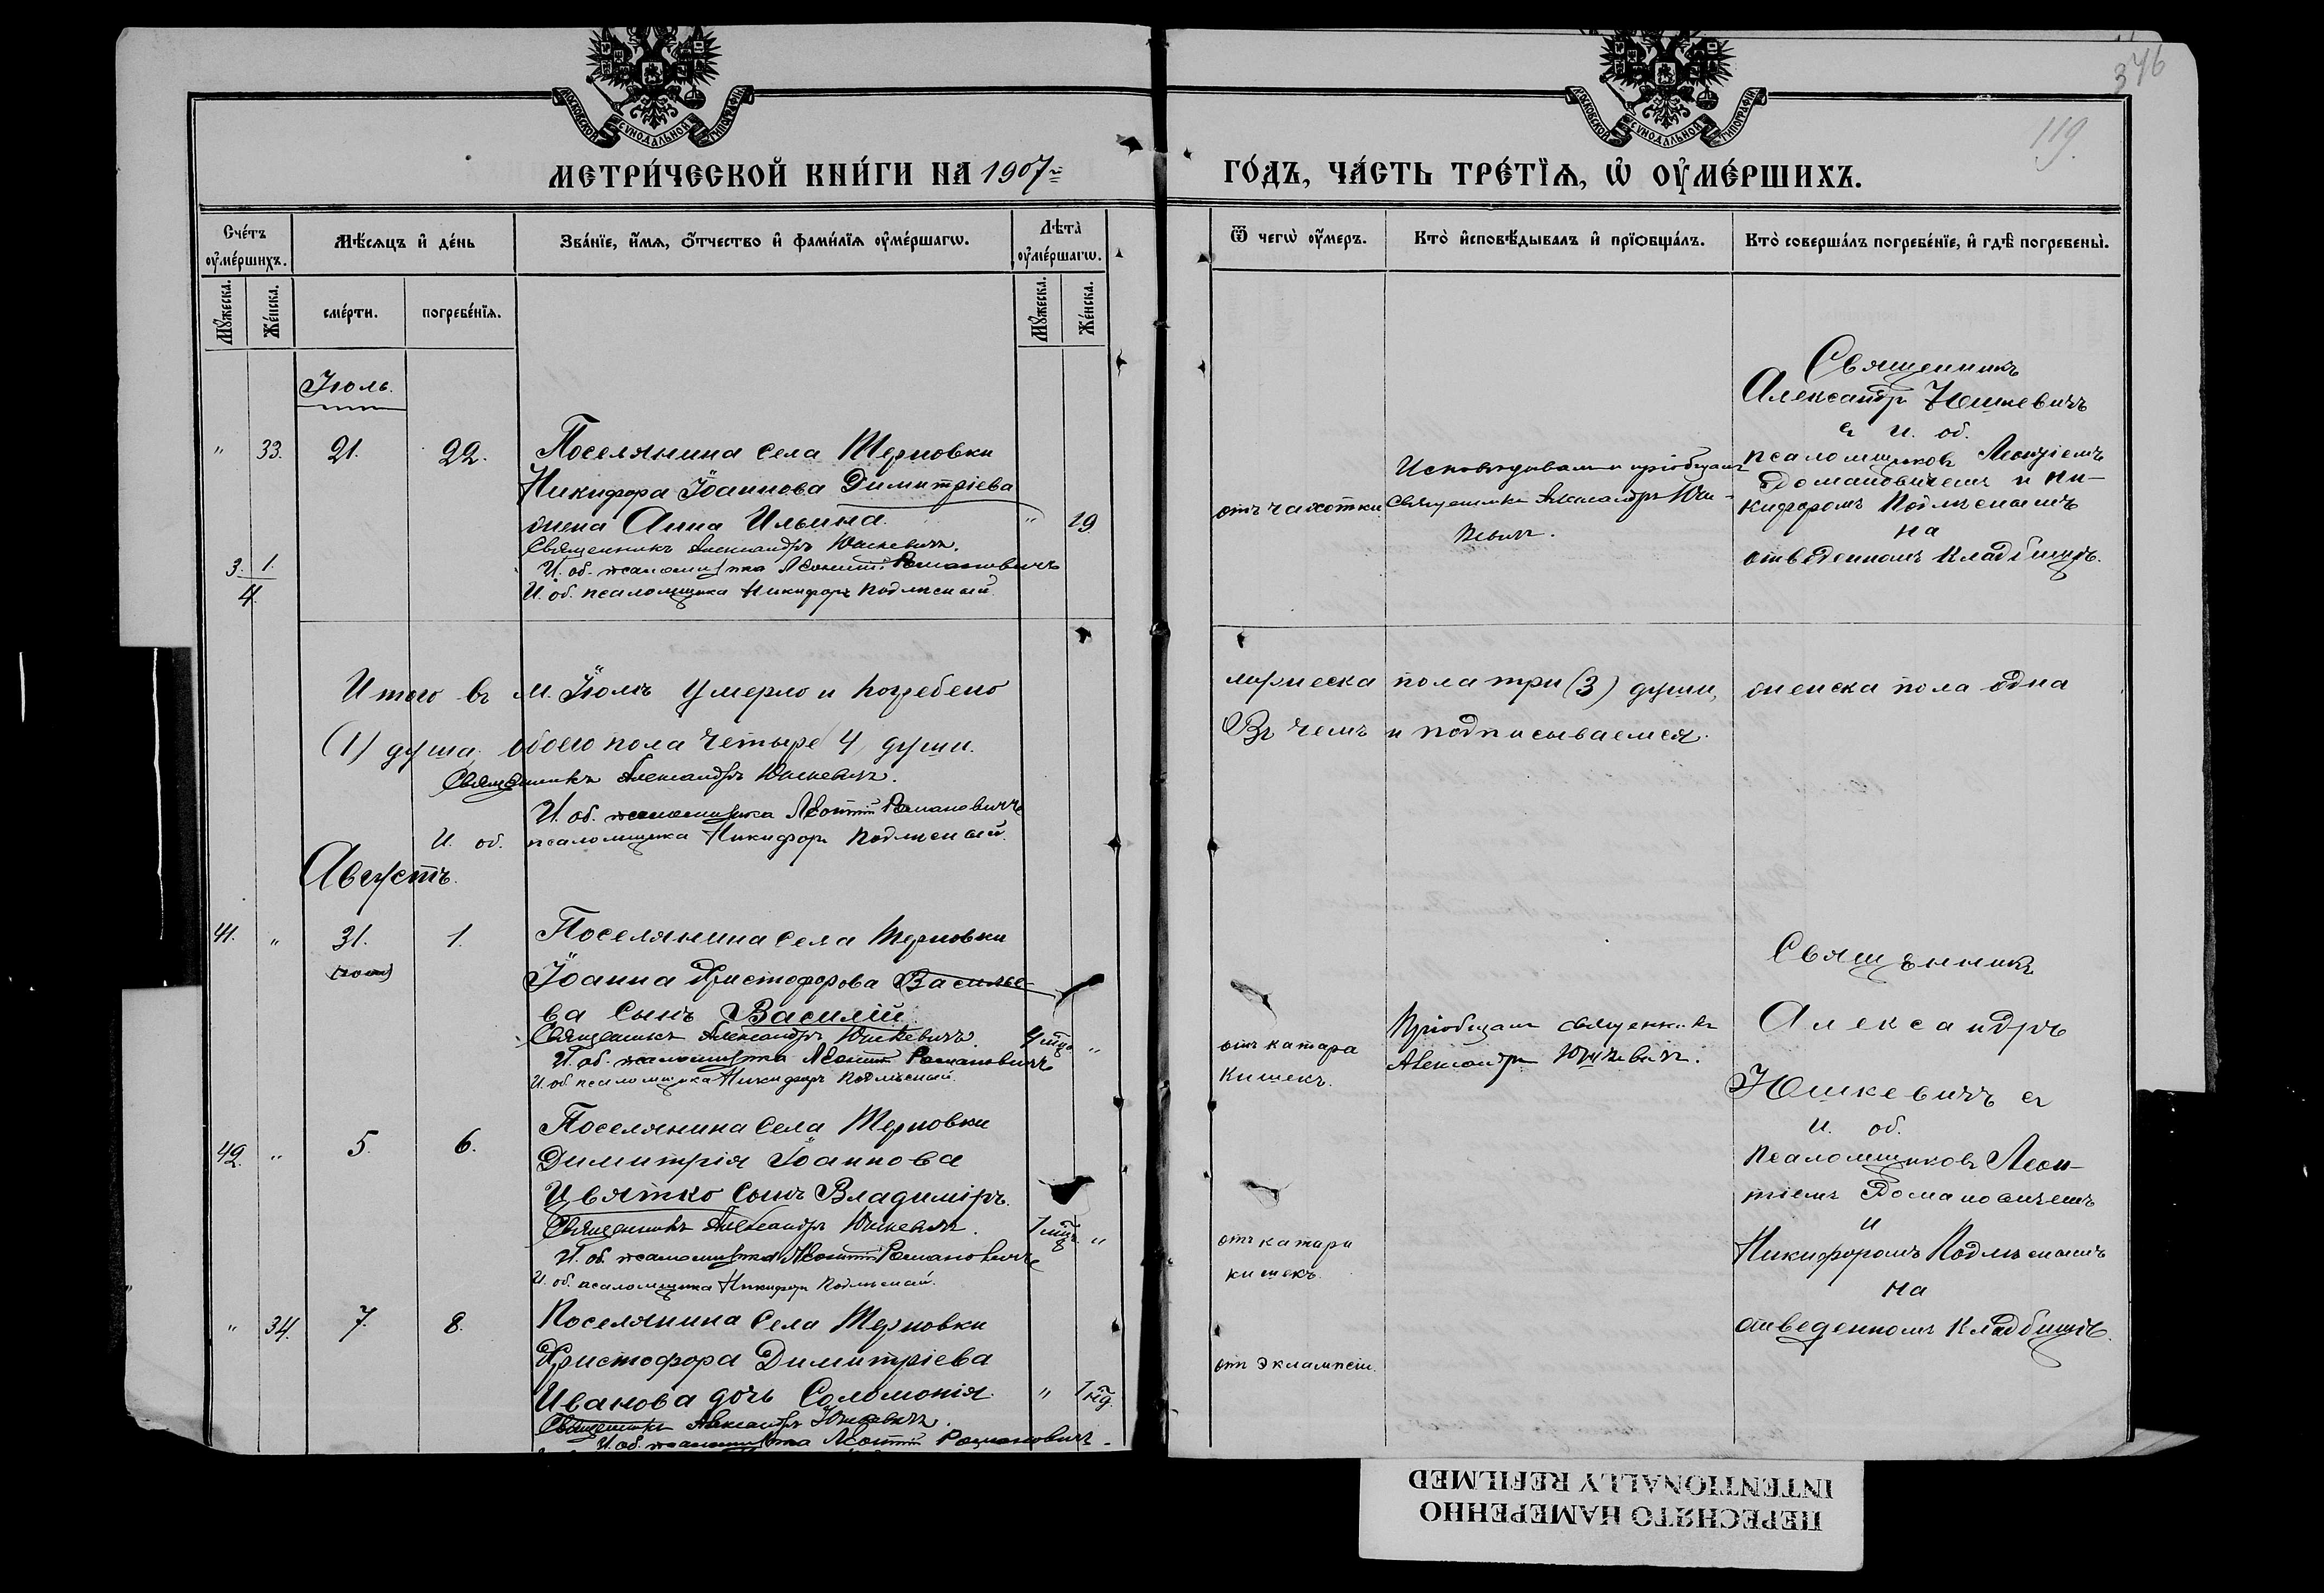 346
119.
МОСКОВСКОЙ СѴНОДАЛЬНОЙ ТИПОГРАФІИ
МОСКОВСКОЙ СѴНОДАЛЬНОЙ ТИПОГРАФІИ
МЕТРИ́ЧЕСКОЙ КНИ́ГИ НА 1907й
ГО́ДЪ, ЧА́СТЬ ТРЕ́ТЇѦ, Ѡ҆ ОУ҆МЕ́РШИХЪ.
Сче́тъ оу҆ме́ршихъ.
Мѣ́сѧцъ и҆ де́нь
Зва́нїе, и҆́мѧ, ѻ҆́тчество и҆ фами́лїѧ оу҆ме́ршагѡ.
Лѣта̀ оу҆ме́ршагѡ.
Ѿ чегѡ̀ оу҆́меръ.
Кто̀ и҆сповѣ́дывалъ и҆ прїѻбща́лъ.
Кто̀ соверша́лъ погребе́нїе, и҆ гдѣ̀ погребены̀.
Мꙋ́жеска.
Же́нска.
сме́рти.
погребе́нїѧ.
Мꙋ́жеска.
Же́нска.
Іюль.
" 33. 21. 22.
Поселянина села Терновки
Никифора Іоаннова Димитріева
жена Анна Ильина.
" 29
Священникъ Александръ Юшкевичъ.
И. об. псаломщика Леонтій Романовичъ
И. об. псаломщика Никифоръ Подлѣсный
3. 1.
4.
отъ чахотки
Исповѣдывалъ и пріобщалъ
священникъ Александръ Юш-
кевичъ.
Священникъ
Александръ Юшкевичъ
съ и. об.
псаломщиковъ Леонтіемъ
Романовичемъ и Ни-
кифоромъ Подлѣснымъ
на
отведенномъ кладбищѣ.
Итого въ м. Іюлѣ умерло и погребено мужеска пола три (3) души, женска пола одна
(1) душа, обоего пола четыре 4 души. Въ чемъ и подписываемся.
Священникъ Александръ Юшкевичъ.
И. об. псаломщика Леонтій Романовичъ
И. об. псаломщика Никифоръ Подлѣсный.
Августъ.
41. " 31. 1.
(іюля)
Поселянина села Терновки
Іоанна Христофорова Василье-
ва сынъ Василій
Священникъ Александръ Юшкевичъ.
И. об. псаломщика Леонтій Романовичъ
И. об псаломщика Никифоръ Подлѣсный.
"
отъ катара
кишекъ.
Пріобщалъ священникъ
Александръ Юшкевичъ.
Священникъ
Александръ
Юшкевичъ съ
и. об.
псаломщиковъ Леон-
тіемъ Романовичемъ
и
Никифоромъ Подлѣснымъ
на
отведенномъ кладбищѣ.
42. " 5. 6.
Поселянина села Терновки
Димитрія Іоаннова
Цвятко сынъ Владиміръ.
Священникъ Александръ Юшкевичъ.
И. об. псаломщика Леонтій Романовичъ
И. об. псаломщика Никифоръ Подлѣсный.
"
отъ катара
кишекъ.
" 34. 7. 8.
Поселянина села Терновки
Христофора Димитріева
Иванова дочь Соломонія.
" 1 нед.
Священникъ Александръ Юшкевичъ.
И. об. псаломщика Леонтій Романовичъ
отъ эклампсіи.
ПЕРЕСНЯТО НАМЕРЕННО
INTENTIONALLY REFILMED